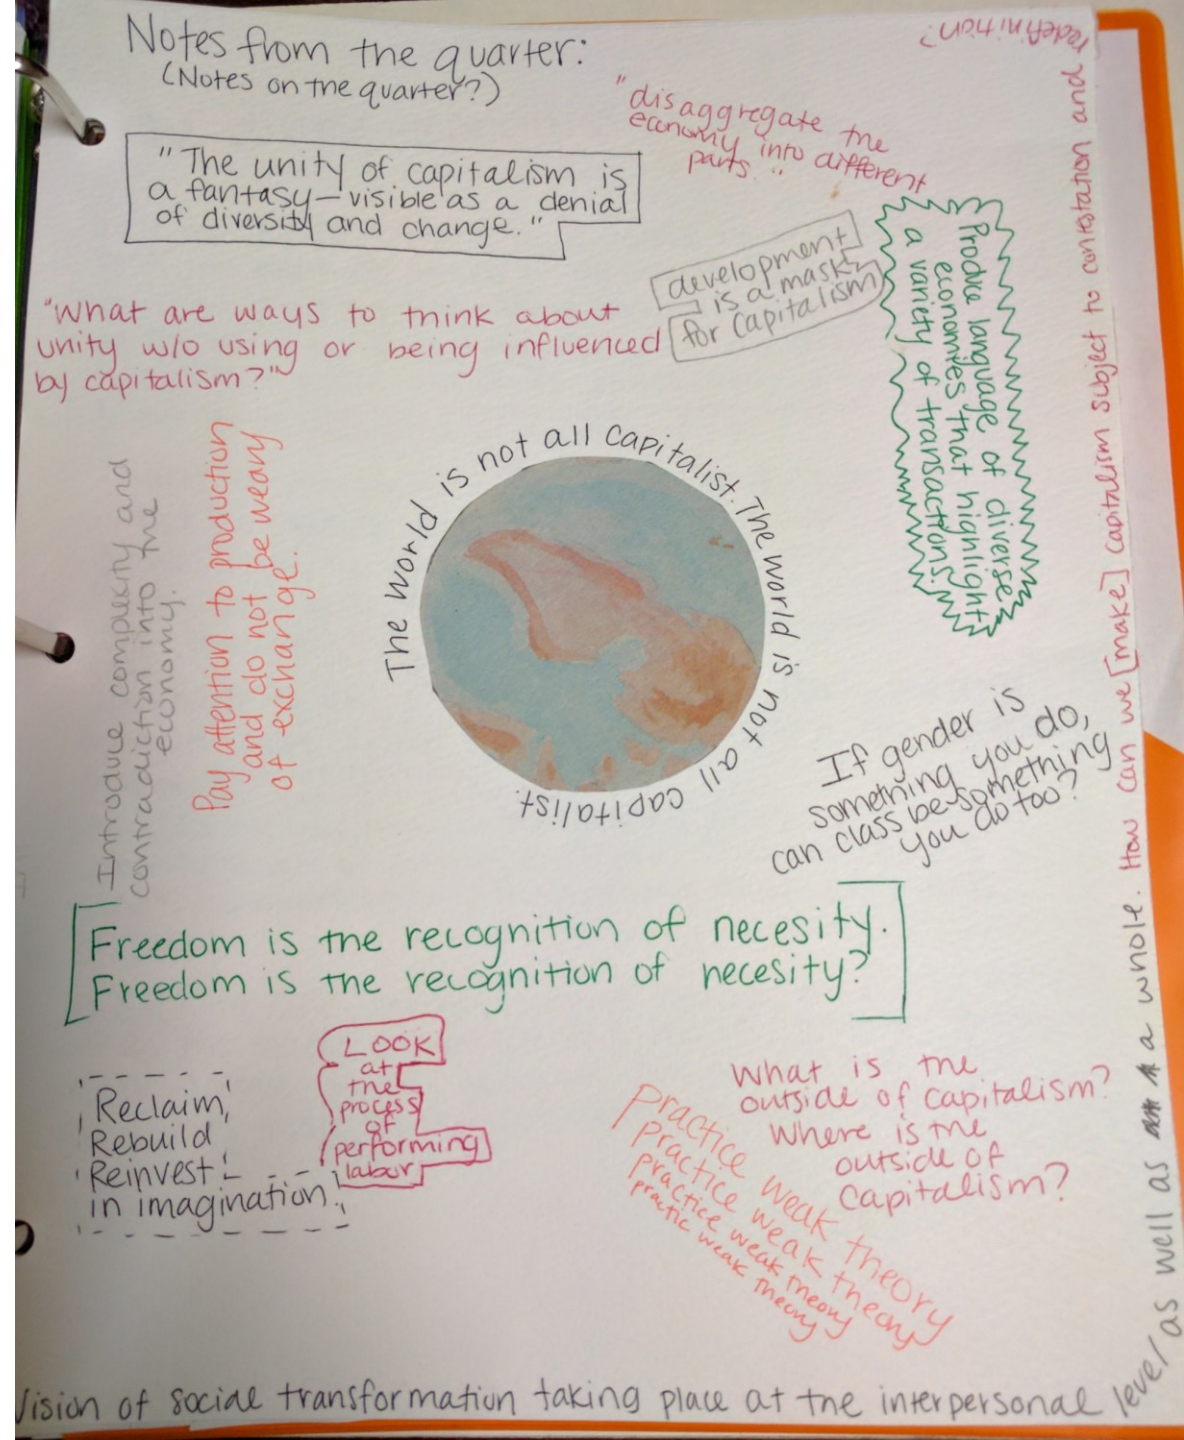 Notes from the quarter:
(Notes on the quarter?)
"disaggregate the
economy into different
parts."
"The unity of capitalism is
a fantasy—visible as a denial
of diversity and change."
development
is a mask
for capitalism
Produce language of diverse
economies that highlight
a variety of transactions.
"What are ways to think about
unity w/o using or being influenced
by capitalism?"
Introduce complexity and
contradiction into the
economy.
Pay attention to production
and do not be weary
of exchange.
The world is not all capitalist. The world is not all capitalist.
If gender is
something you do,
can class be something
you do too?
Freedom is the recognition of necesity.
Freedom is the recognition of necesity?
Reclaim,
Rebuild
Reinvest
in imagination.
LOOK
at
the
process
of
performing
labor
What is the
outside of capitalism?
Where is the
outside of
capitalism?
practice weak theory
practice weak theory
practice weak theory
practic weak theory
Vision of social transformation taking place at the interpersonal level as well as a whole. How can we [make] capitalism subject to contestation and
redefinition?